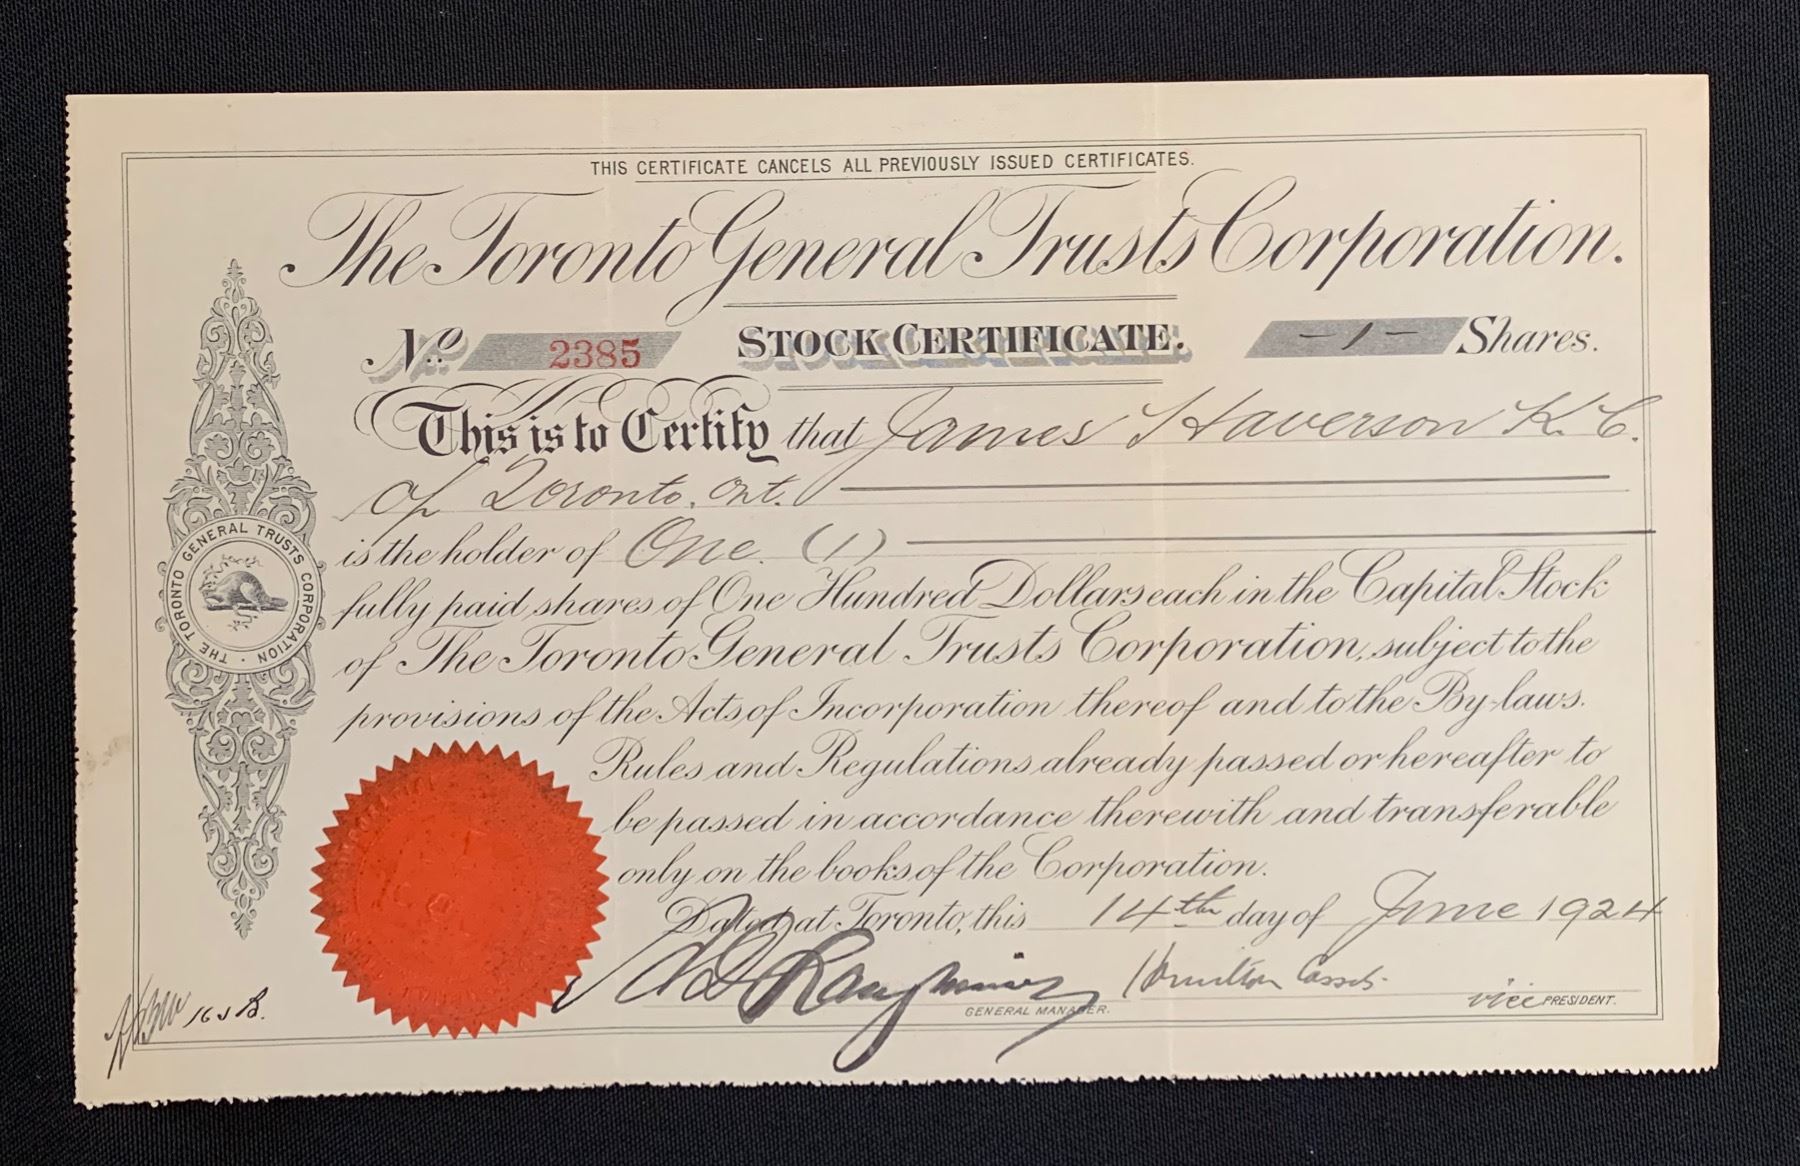 THIS CERTIFICATE CANCELS ALL PREVIOUSLY ISSUED CERTIFICATES.
The Toronto General Trusts Corporation.
No. 2385 STOCK CERTIFICATE. -1- Shares.
This is to Certify that James Haverson K.C.
of Toronto, Ont.
is the holder of One (1)
fully paid shares of One Hundred Dollars each in the Capital Stock
of The Toronto General Trusts Corporation, subject to the
provisions of the Acts of Incorporation thereof and to the By-laws.
Rules and Regulations already passed or hereafter to
be passed in accordance therewith and transferable
only on the books of the Corporation.
Dated at Toronto, this 14th day of June 1924
Hamilton Cassels
GENERAL MANAGER.
vice PRESIDENT.
THE TORONTO GENERAL TRUSTS CORPORATION